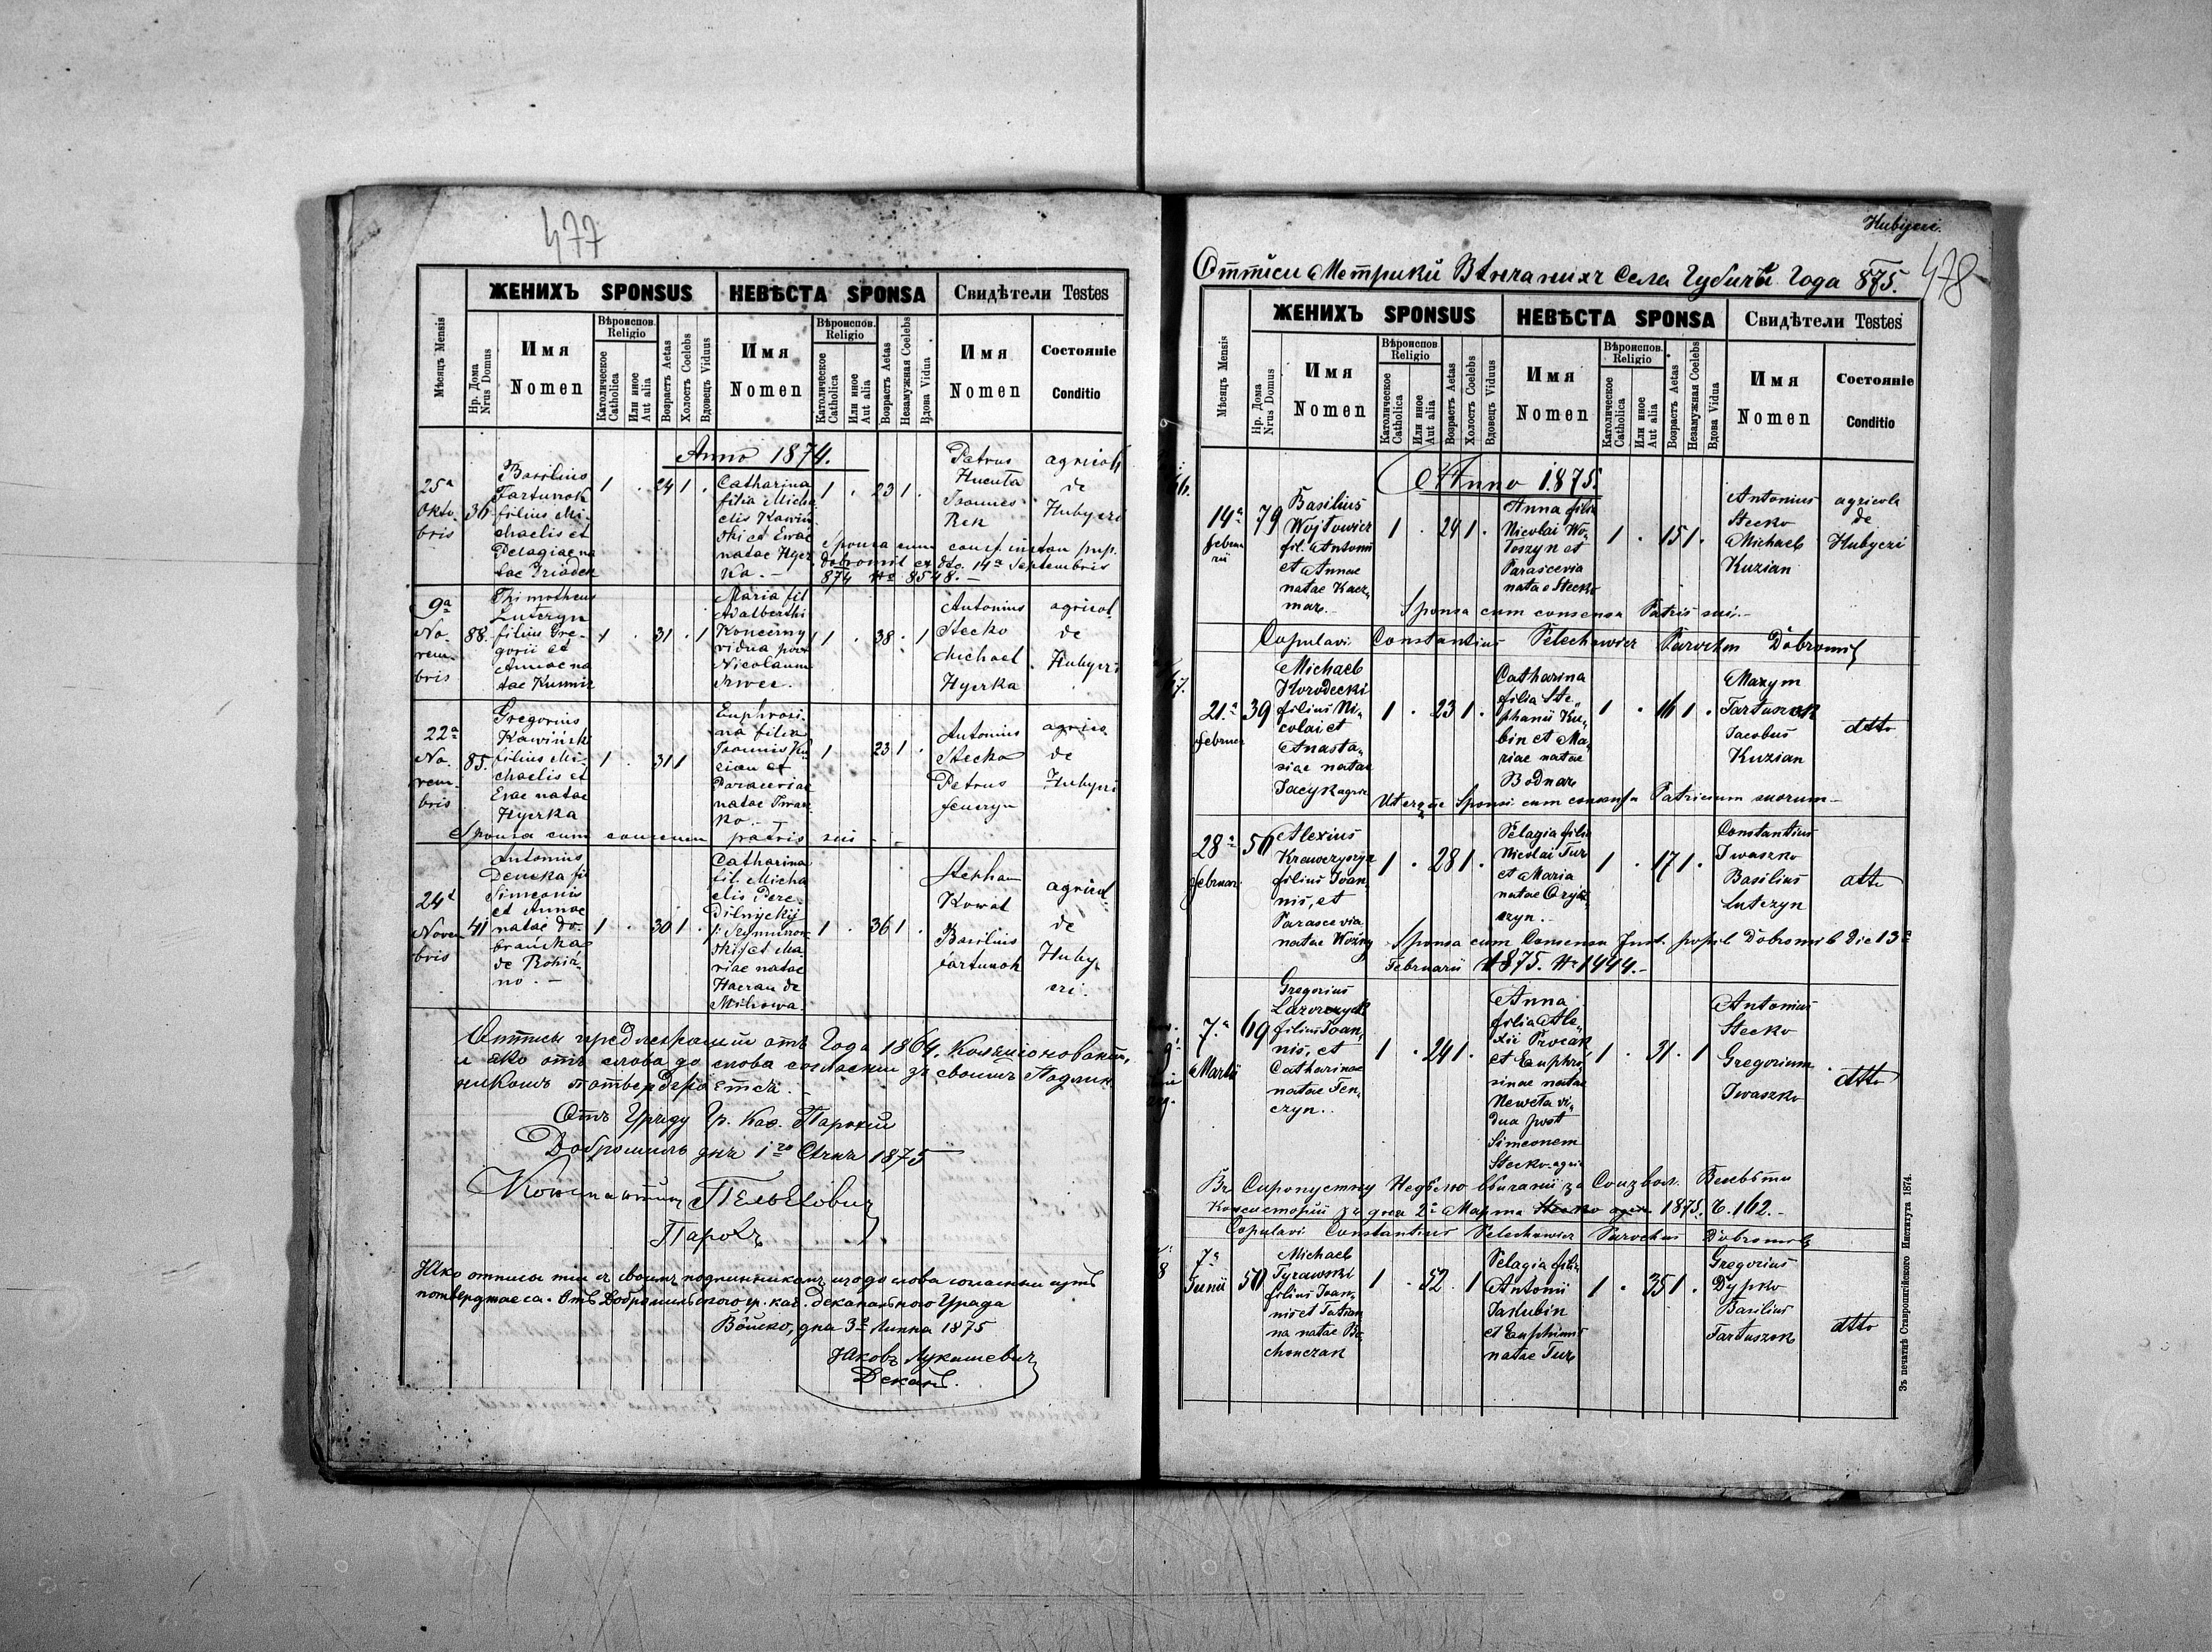 477
ЖЕНИХЪ SPONSUS НЕВѢСТА SPONSA Свидѣтели Testes
Мѣсяцъ Mensis
Нр. Дома
Nrus Domus
Имя
Nomen
Вѣроиспов.
Religio
Католическое
Catholica
Или иное
Aut alia
Возрастъ Aetas
Холостъ Coelebs
Вдовецъ Viduus
Имя
Nomen
Вѣроиспов.
Religio
Католическое
Catholica
Или иное
Aut alia
Возрастъ Aetas
Незамужная Coelebs
Вдова Vidua
Имя
Nomen
Состояніе
Conditio
Anno 1874.
25ª
Okto-
bris
36
Basilius
Fartunok
filius Mi-
chaelis et
Pelagiae na
tae
1 . 24 1 .
Catharina
filia Micha
elis Kawiń
ski et Evae
natae Hyer
ka. -
1 . 23 1 .
Sponsa cum
Dobromil
874 Nº 8548. -
dto. 14ª Septembris
Petrus
Hucuta
Joannes
Rek
agricol
de
Hubyczi
9ª
No-
vem-
bris
88.
Thimotheus
Lutczyn
filius Gre-
gorii et
Annae na
tae Kusmir
1 . 31 . 1
Maria fil
Adalberthi
Koncerny
vidua post
Nicolaum
1 . 38 . 1
Antonius
Stecko
Michael
Hyerka
agricol.
de
Hubyczi
22ª
No-
vem-
bris
85.
Gregorius
Kawiński
filius Mi-
chaelis et
Evae natae
Hyerka
1 . 31 1
Euphrosi-
na filia
Joannis Ku
zian et
Parasceviae
natae Iwan
ko. -
1 . 23 1 .
Antonius
Stecko
Petrus
agrico.
de
Hubyczi
Sponsa cum consensu patris sui -
24ª
Novem
bris
41
Antonius
fil
Simeonis
et Annae
natae Do-
brańska
de
no. -
1 . 30 1 .
Catharina
fil. Micha
elis Pere-
dilnyckij
ski et Ma-
riae natae
Hacran de
Milowa.
1 . 36 1 .
Stephan
Kowal
Basilius
Fartunok
agricol
de
Huby-
czi.
Отписы предлежащiи отъ Года 1864.
и яко отъ слова до слова согласни зъ своимъ Подлин
никомъ потверджаются.
Отъ Уряду Гр. Каѳ. Парохіи
Добромиль дня 1го Січня 1875
Константинъ Пельехович
Парохъ
Яко отписы тіи съ своимъ подлинникомъ изъ до слова согласныи суть
потверджаеся. Отъ Добромильского гр. каѳ. деканального Уряда
Войско, дня 3º Липца 1875
Яковъ Лукашевич
Деканъ.
Hubycze.
478
Отписи Метрики Вѣнчанихъ Села Губичѣ Года 875.
ЖЕНИХЪ SPONSUS НЕВѢСТА SPONSA Свидѣтели Testes
Мѣсяцъ Mensis
Нр. Дома
Nrus Domus
Имя
Nomen
Вѣроиспов.
Religio
Католическое
Catholica
Или иное
Aut alia
Возрастъ Aetas
Холостъ Coelebs
Вдовецъ Viduus
Имя
Nomen
Вѣроиспов.
Religio
Католическое
Catholica
Или иное
Aut alia
Возрастъ Aetas
Незамужная Coelebs
Вдова Vidua
Имя
Nomen
Состояніе
Conditio
Anno 1875.
14ª
Februa
rii
79
Basilius
Wojtowicz
fil. Antonii
et Annae
natae Kacz-
mar. -
1 . 24 1 .
Anna filia
Nicolai Wo-
loszyn et
Parascevia
natae Stecko
1 . 15 1 .
Antonius
Stecko
Michael
Kuzian
agricola
de
Hubyczi
Sponsa cum consensu Patris sui. -
Copulavi Constantius Pelechowicz Parochus Dobromil
21.ª
Februar
39
Michael
Korodecki
filius Ni-
colai et
Anasta-
siae natae
Jacyk agric
1 . 23 1 .
Catharina
filia Ste-
phanii Ku-
bin et Ma-
riae natae
Bodnar
1 . 16 1 .
Maxym
Fartunok
Jacobus
Kuzian
dtto
Uterque Sponsi cum consensu Patrium suorum -
28ª
Februar
56
Alexius
Krawczyszyn
filius Joan-
nis, et
Parascevia
natae Woźny
1 . 28 1 .
Pelagia filia
Nicolai Tur
et Maria
natae
1 . 17 1 .
Constantius
Iwaszko
Basilius
Lutczyn
dtto
Sponsa cum Consensu Inst. pupil Dobromil die 13ª
Februarii 1875. Nº 1444. -
7.ª
Martii
69
Gregorius
Lazorczyk
filius Joan-
nis, et
Catharinae
natae Fen-
czyn. .
1 . 24 1 .
Anna
filia Ale-
xii Procak
et Euphro-
sinae natae
Neweta vi-
dua post
Simeonem
Stecko-agri
1 . 31 . 1
Antonius
Stecko
Gregorium
Iwaszko
dtto
Въ Сиропустну Недѣлю вѣнчаніи за Соизвол.
Консисторіи зъ дня 2º Марта 1875. Ч. 162. -
Copulavi Constantius Pelechowicz Parochus Dobromil
7ª
Junii
50
Michael
Tyrawski
filius Joan-
nis et Tatian
na natae Bo-
chonczak
1 . 52 . 1
Pelagia filia
Antonii
Jakubin
et Euphimi
natae Tur
1 . 35 1 .
Gregorius
Dypko
Basilius
Fartuszok
dtto
Зъ печатнѣ Ставропигійского Института 1874.